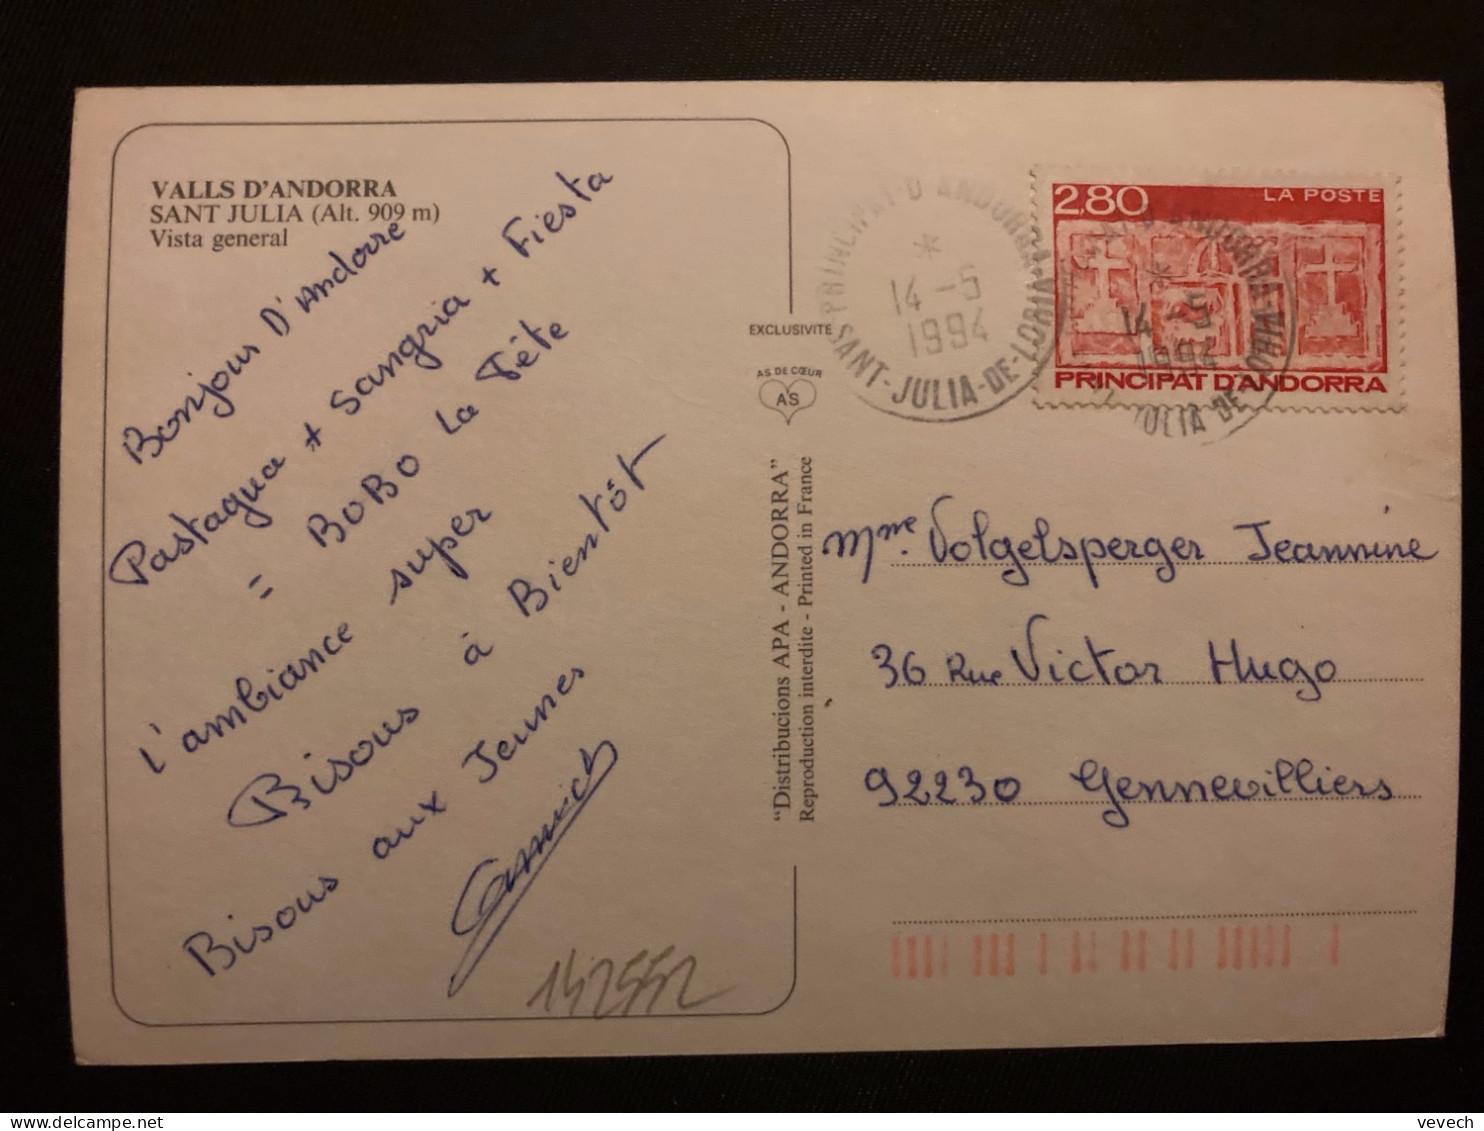 VALLS D'ANDORRA
SANT JULIA (Alt. 909 m)
Vista general
Bonjour D'Andorre
Pastagua + Sangria + Fiesta
= BOBO La Tête
l'ambiance super
Bisous à Bientôt
Bisous aux Jeunes
142552
EXCLUSIVITE
AS DE CŒUR
AS
"Distribucions APA - ANDORRA"
Reproduction interdite - Printed in France
PRINCIPAT-D'ANDORRA
*
14-5
1994
SANT-JULIA-DE-LORIA
2,80 LA POSTE
PRINCIPAT D'ANDORRA
PRINCIPAT-D'ANDORRA
*
14-5
1994
JULIA-DE-LORIA
Mme. Volgelsperger Jeannine
36 Rue Victor Hugo
92230 Gennevilliers
vevech